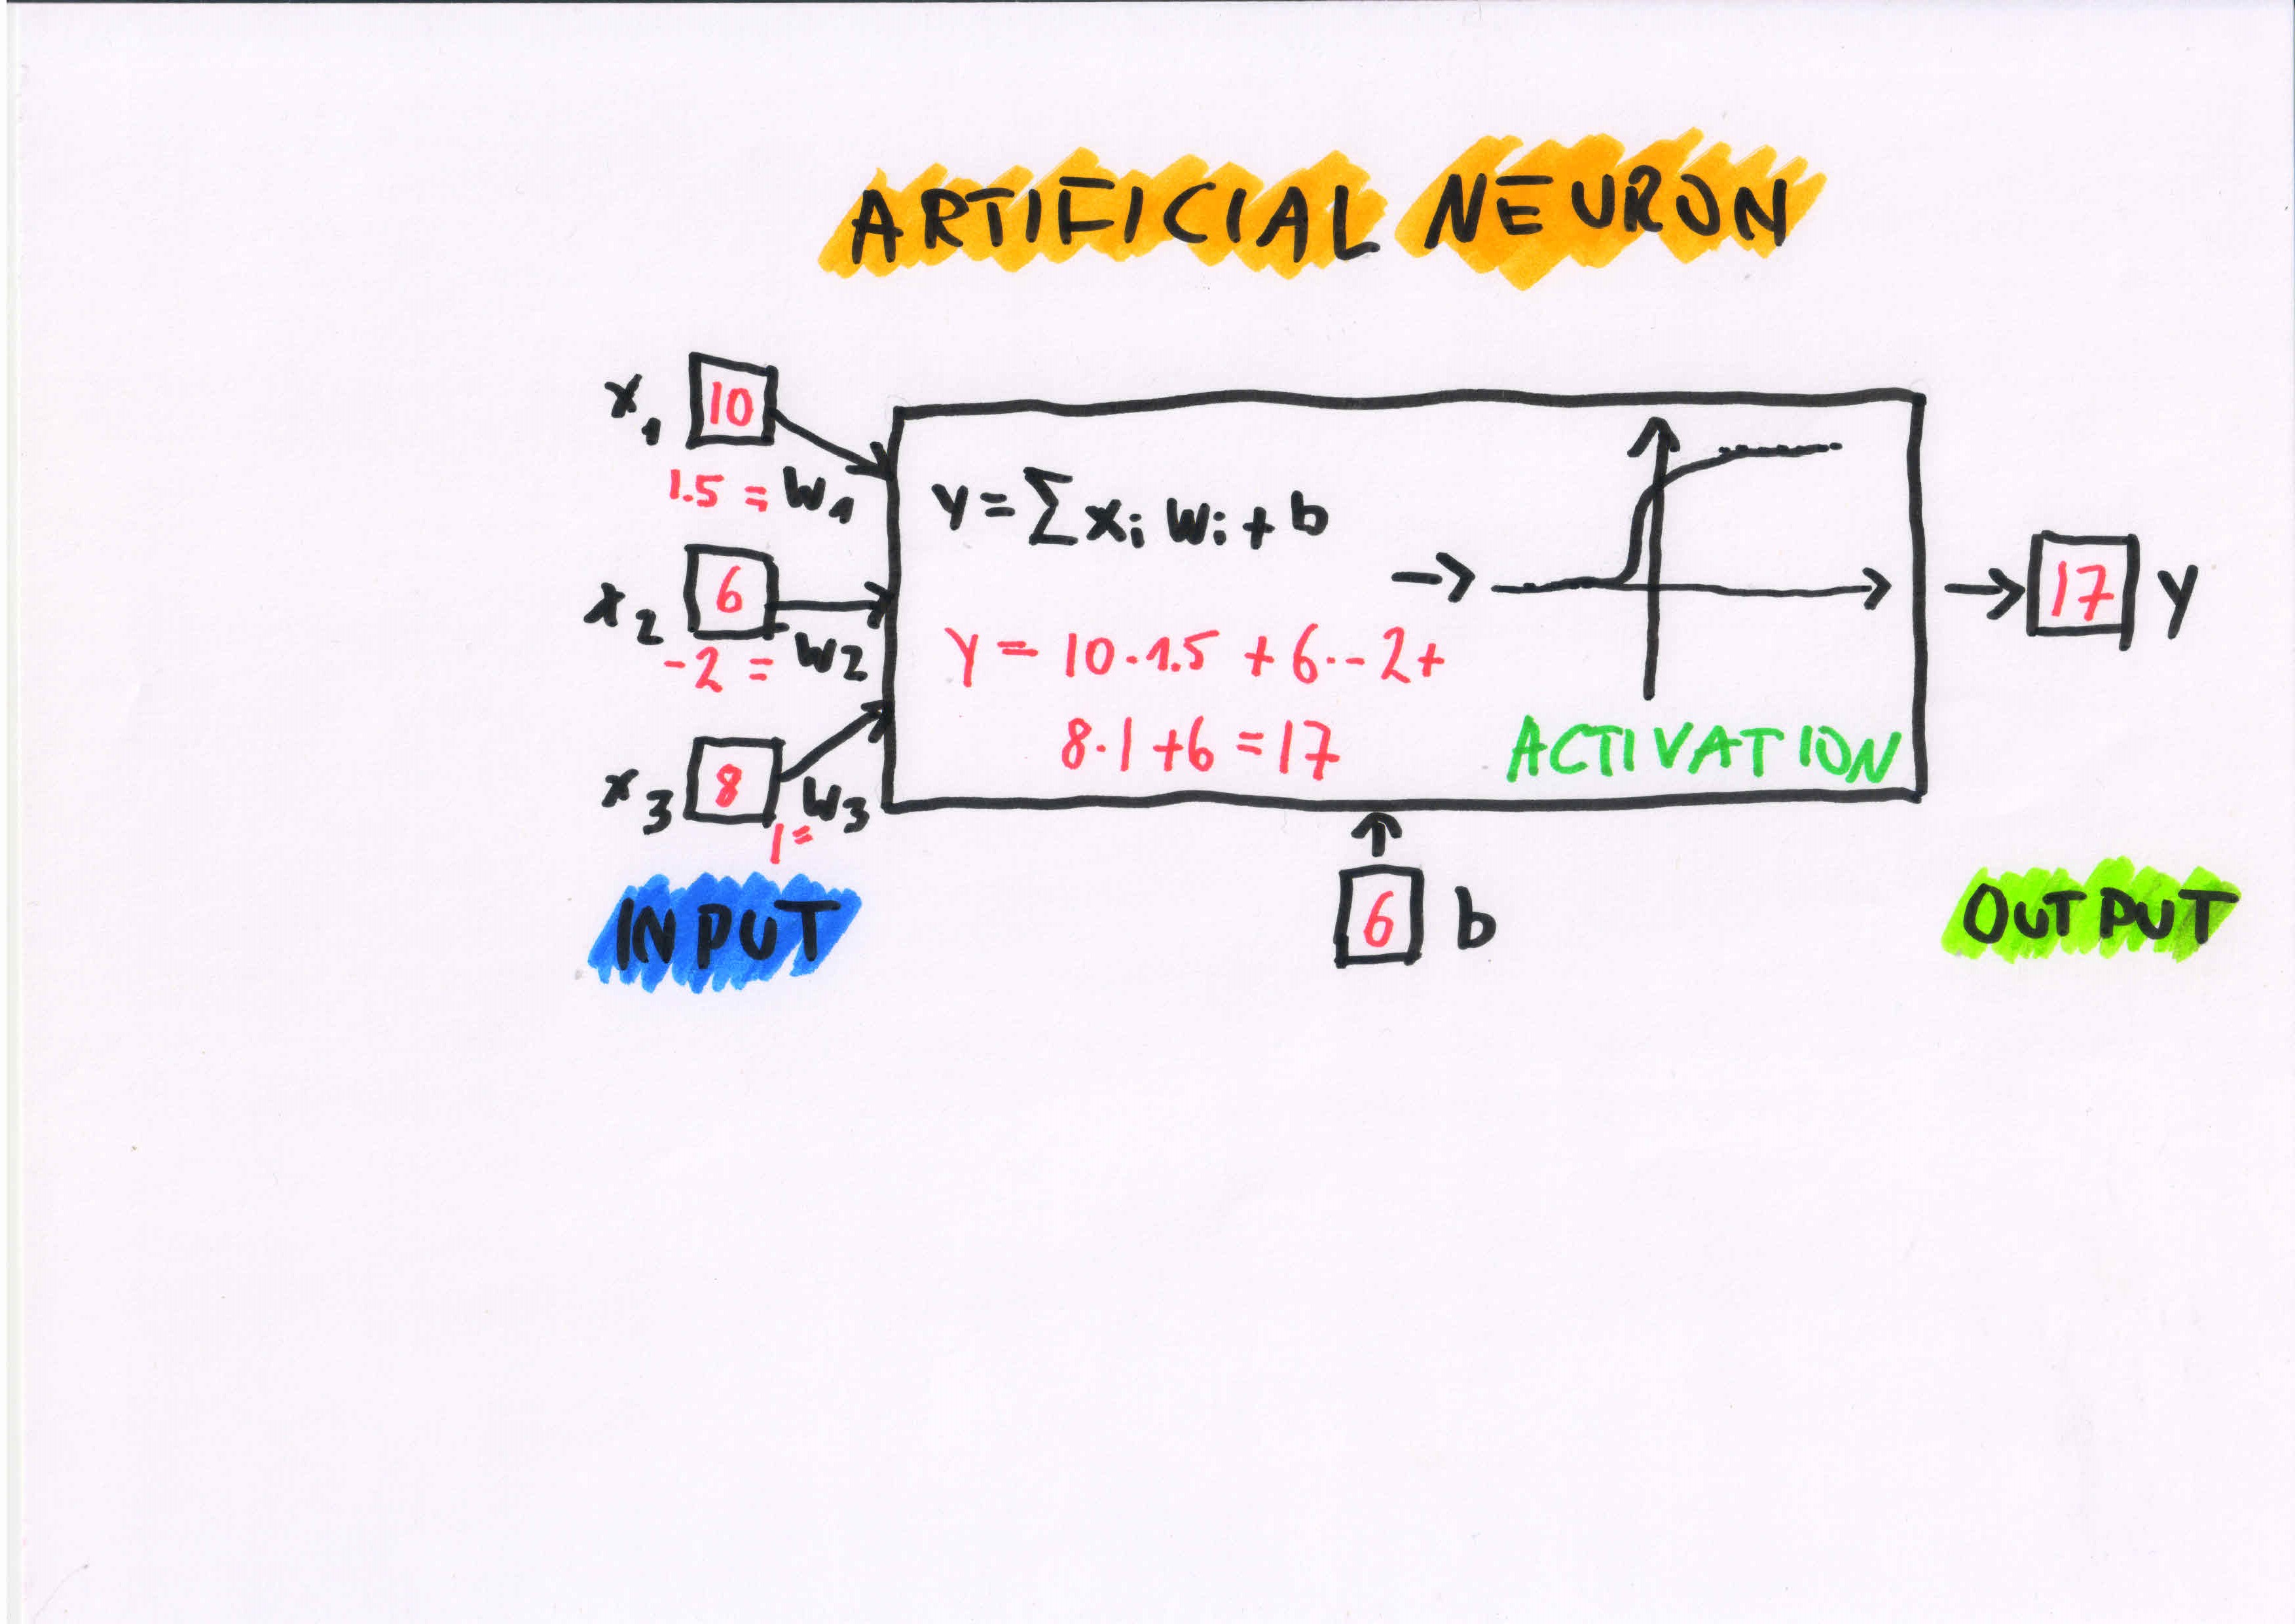 ARTIFICIAL NEURON
x1 10
1.5 = W1
x2 6
-2 = W2
x3 8
1 = W3
INPUT
y = ∑ xi wi + b
y = 10·1.5 + 6·-2+
8·1 +6 = 17
ACTIVATION
6 b
17 y
OUTPUT